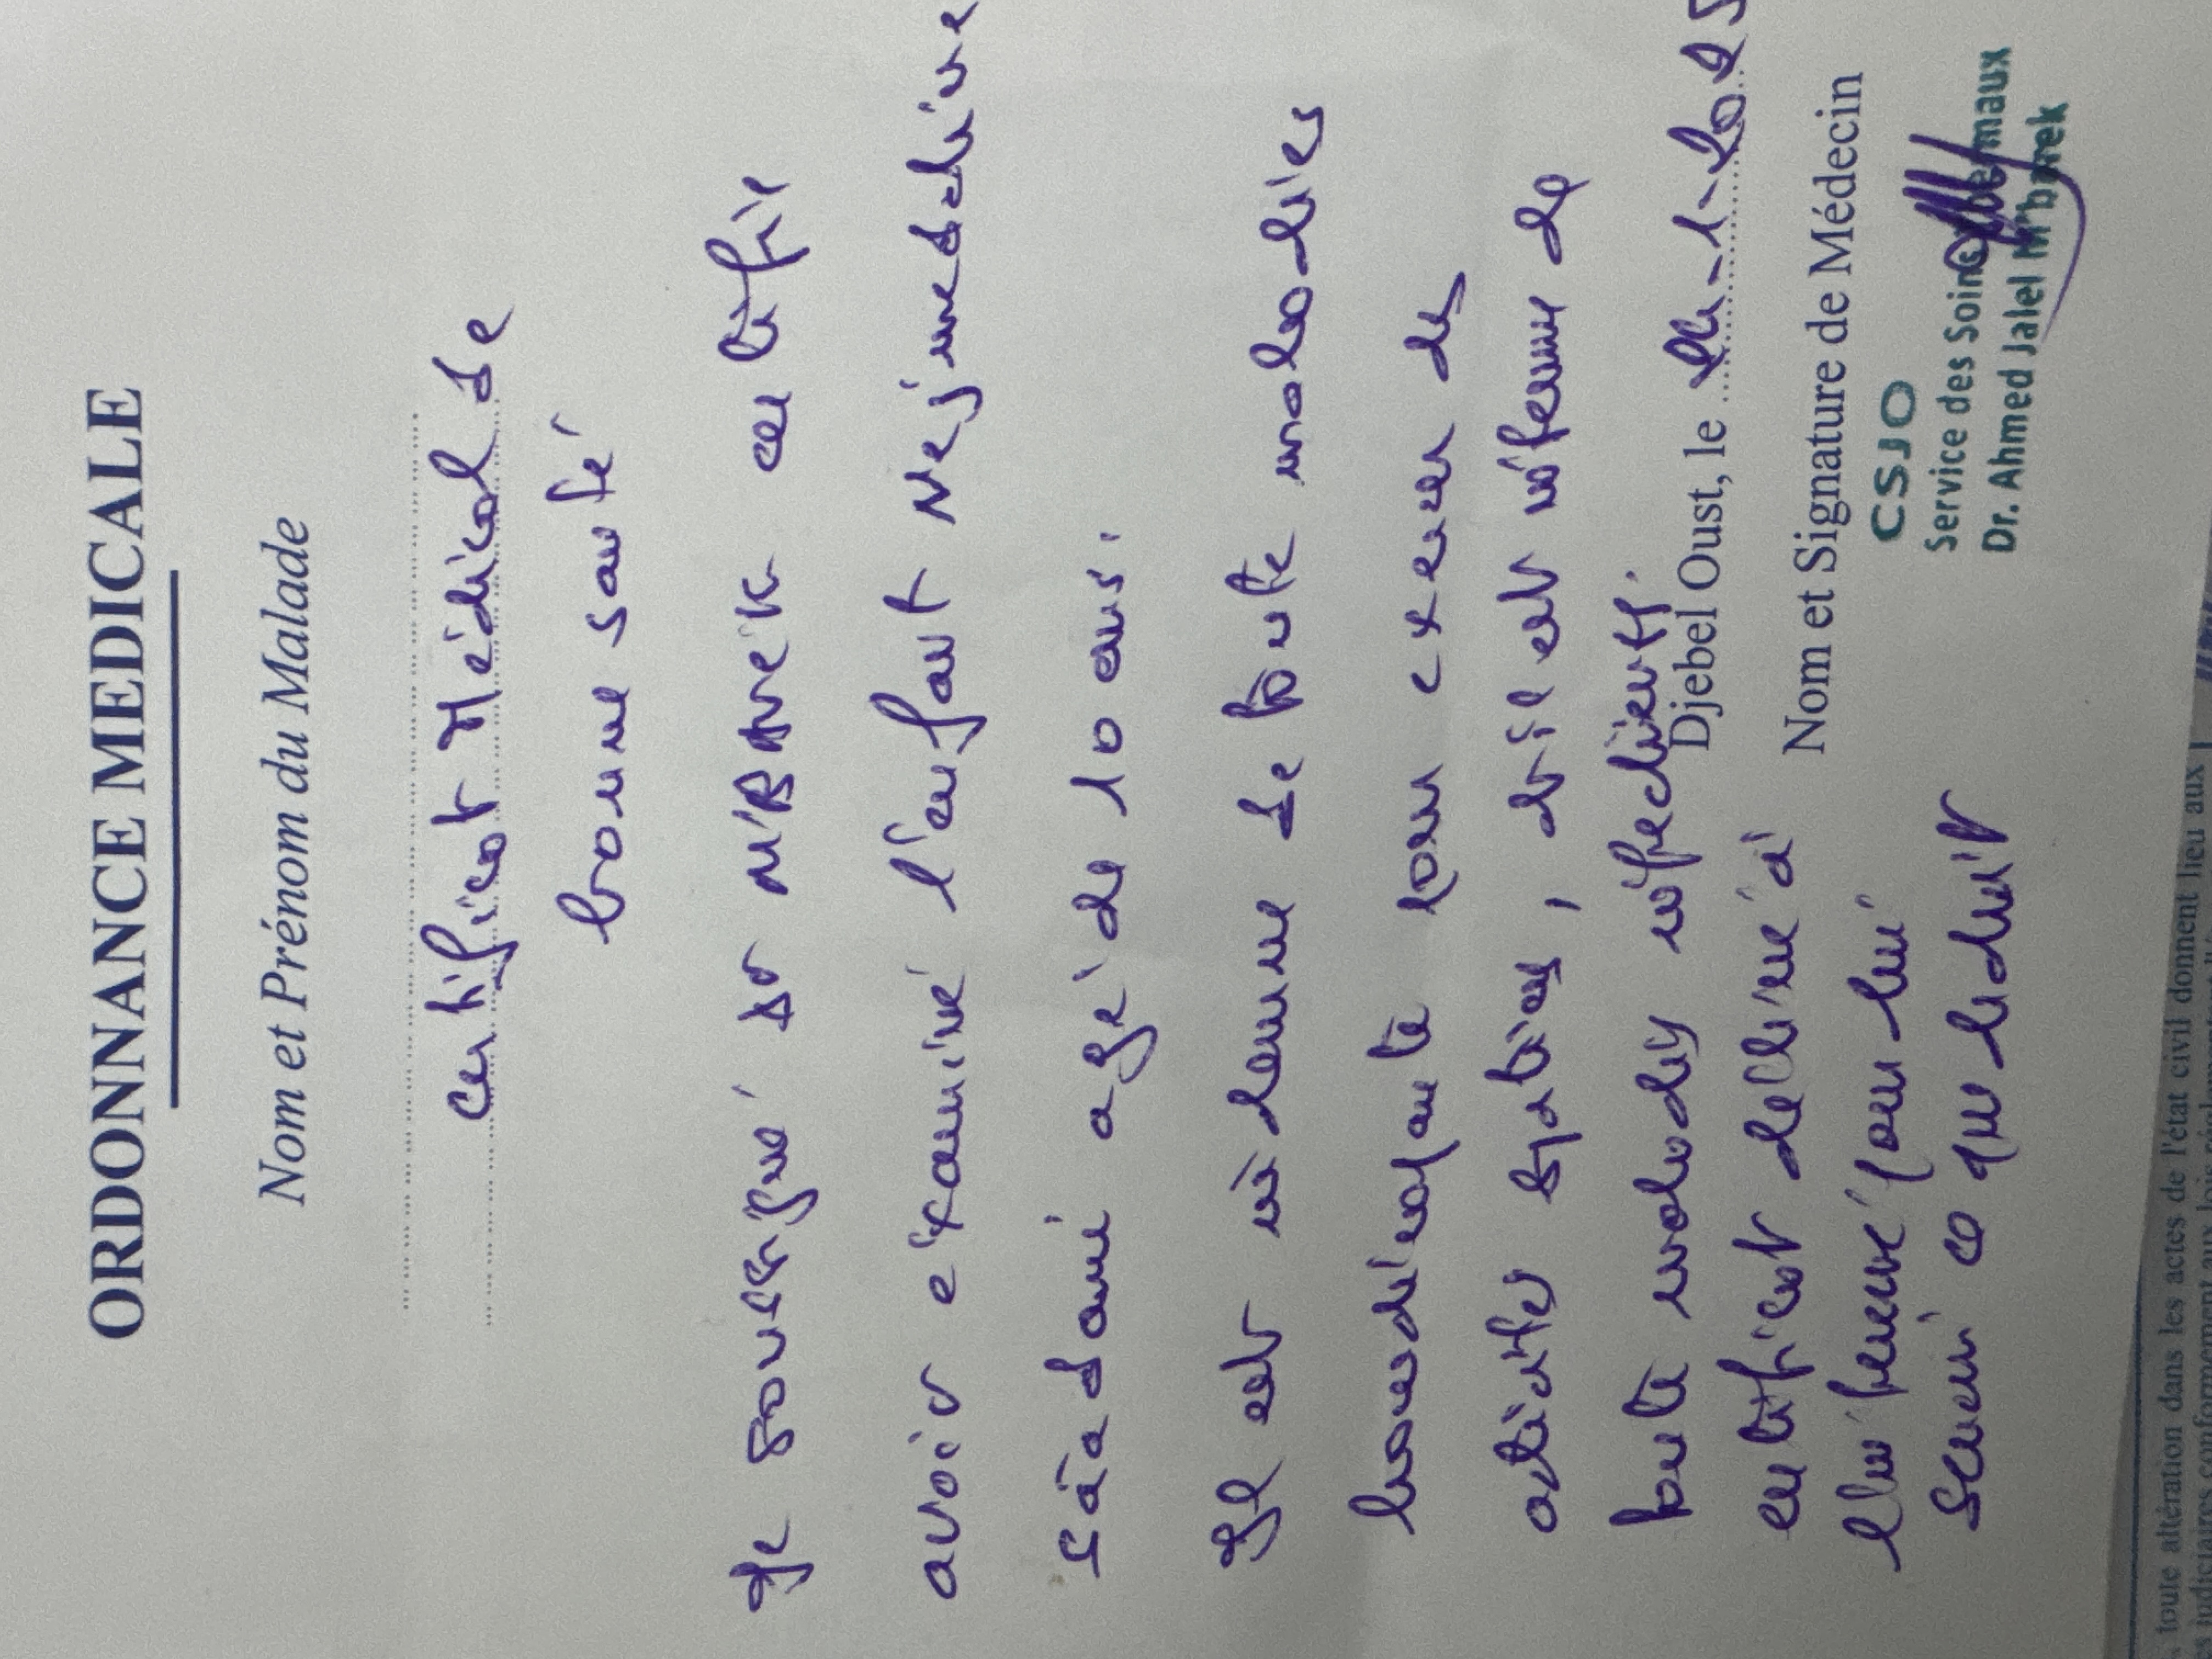 ORDONNANCE MEDICALE
Nom et Prénom du Malade
Certificat Médical de
bonne santé
Je soussigné Dr M'BAREK certifie
avoir examiné l'enfant Nejmeddine
agé de 10 ans.
Il est indemne de toute maladies
handicapante pour exercer des
activités, et il est indemne de
toute maladies infectieuses.
Djebel Oust, le
certificat délivré à
Nom et Signature de Médecin
pour lui
servir ce que de droit
CSJO
Service des Soins
Dr. Ahmed Jalel M'barek
toute altération dans les actes de l'état civil donnent lieu aux
judiciaires conformément aux lois